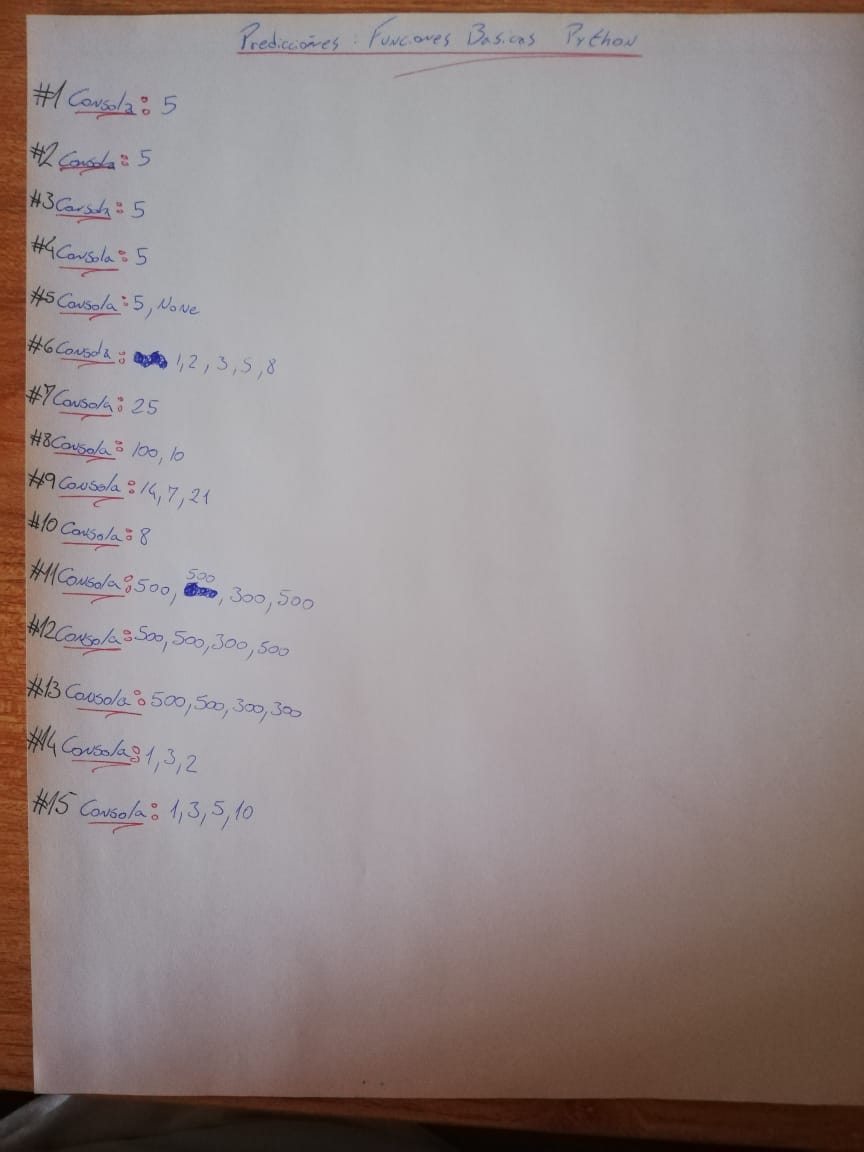 Predicciones: Funciones Basicas Python
#1 Consola: 5
#2 Consola: 5
#3 Consola: 5
#4 Consola: 5
#5 Consola: 5, None
#6 Consola: 1, 2, 3, 5, 8
#7 Consola: 25
#8 Consola: 100, 10
#9 Consola: 14, 7, 21
#10 Consola: 8
#11 Consola: 500, 500, 300, 500
#12 Consola: 500, 500, 300, 500
#13 Consola: 500, 500, 300, 300
#14 Consola: 1, 3, 2
#15 Consola: 1, 3, 5, 10